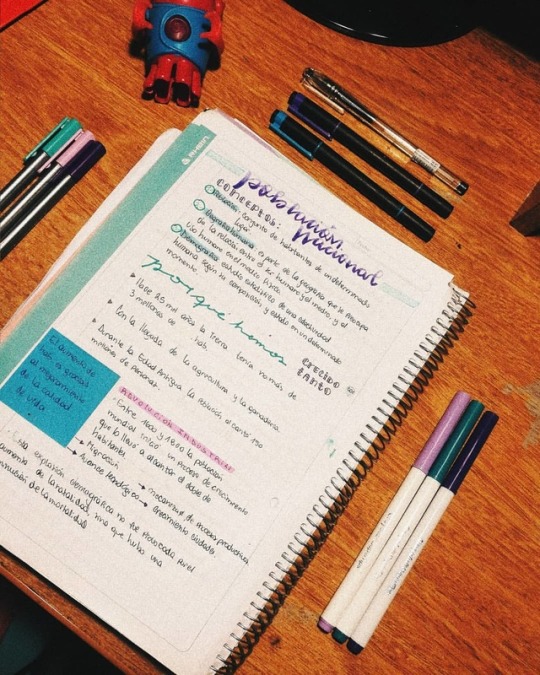 población
mundial
CONCEPTOS:
Población: conjunto de habitantes de un determinado
lugar
Geografía humana: es parte de la geografía que se ocupa
de la relación entre el ser humano y el medio, y el
uso humano en el medio físico
Demografía: estudio estadístico de una colectividad
humana según su composición y estado en un determinado
momento
por qué hemos
CRECIDO
TANTO
Hace 2,5 mil años la tierra tenía no más de
3 millones de hab.
Con la llegada de la agricultura y la ganadería
Durante la Edad Antigua la población alcanzó 170
millones de personas
REVOLUCIÓN INDUSTRIAL
Entre 1200 y 1850 la población
mundial inició un proceso de crecimiento
que la llevó a alcanzar el doble de
habitantes
Migración
Avance tecnológico
mecanización de procesos productivos
Crecimiento ciudades
El aumento de
hab. es gracias
al mejoramiento
de la calidad
de vida
Esta explosión demográfica no fue provocada por el
aumento de la natalidad, sino que hubo una
disminución de la mortalidad